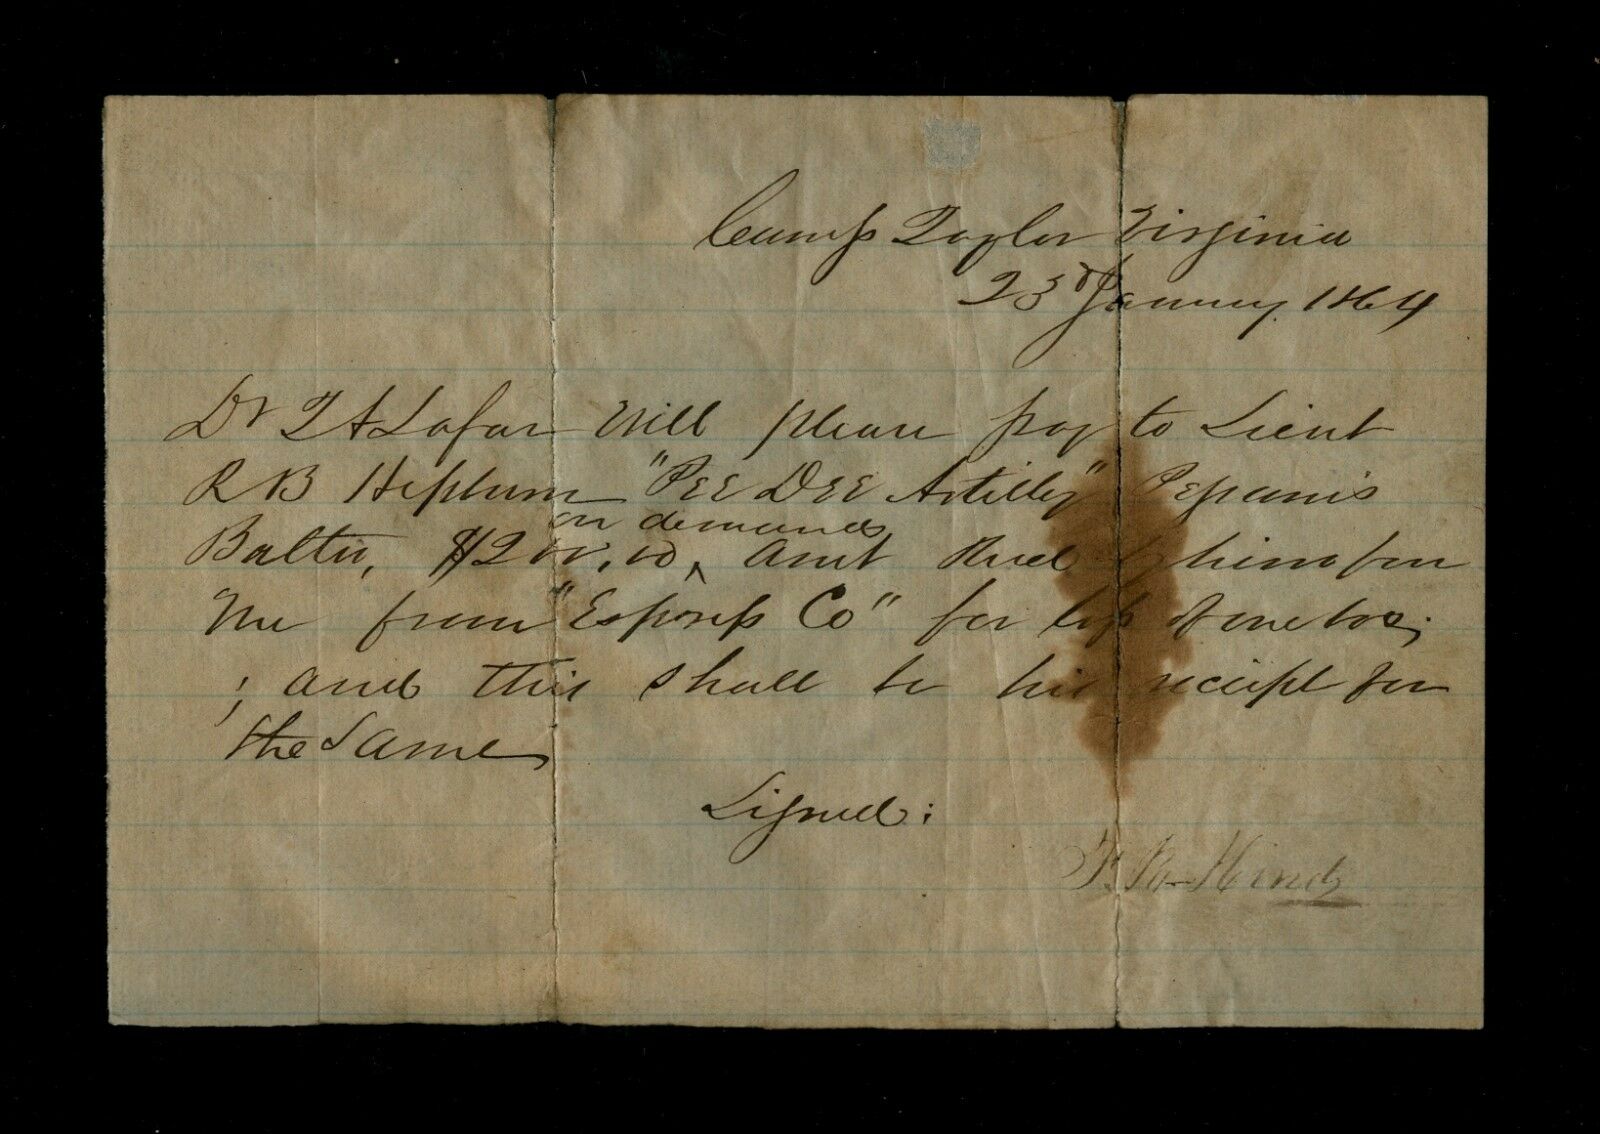 Camp Taylor Virginia
23rd January. 1864
Dr T A Lafar Will please pay to Lieut
R B Hepburn "PEE DEE Artillery"
on demand
Batty, $200.00, amt Recd by him for
Me from "Express Co" for loss of one box;
; and this shall be his reciept for
the Same
Signed: